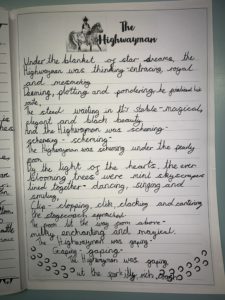 The
Highwayman
Under the blanket of star dreams, the
Highwayman was thinking - entrancing, royal
and
learning, plotting and pondering he
The steed waiting in its stable - magical,
elegant and black beauty,
And the Highwayman was scheming -
scheming - scheming -
The Highwayman was scheming under the pearly
moon.
By the light of the hearts, the ever
blooming trees were mini skyscrapers
lined together - dancing, singing and
smiling,
Clip - clopping, click, clacking and cantering
the stagecoach approached.
The moon lit the way from above -
milky, enchanting and magical.
The Highwayman was gaping -
Gaping - gaping -
The Highwayman was gaping
at the sparkly, rich